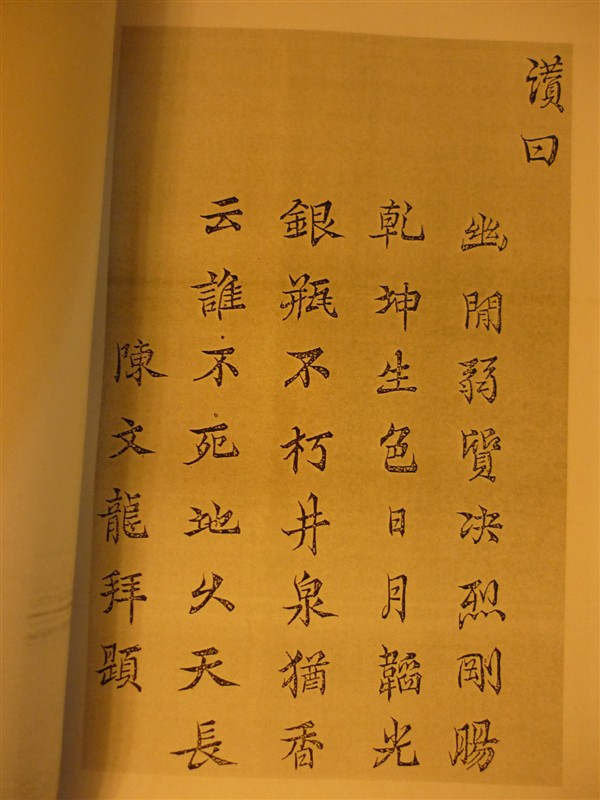 讃曰
幽閒弱質決烈剛腸
乾坤生色日月韜光
銀瓶不朽井泉猶香
云誰不死地久天長
陳文龍拜題